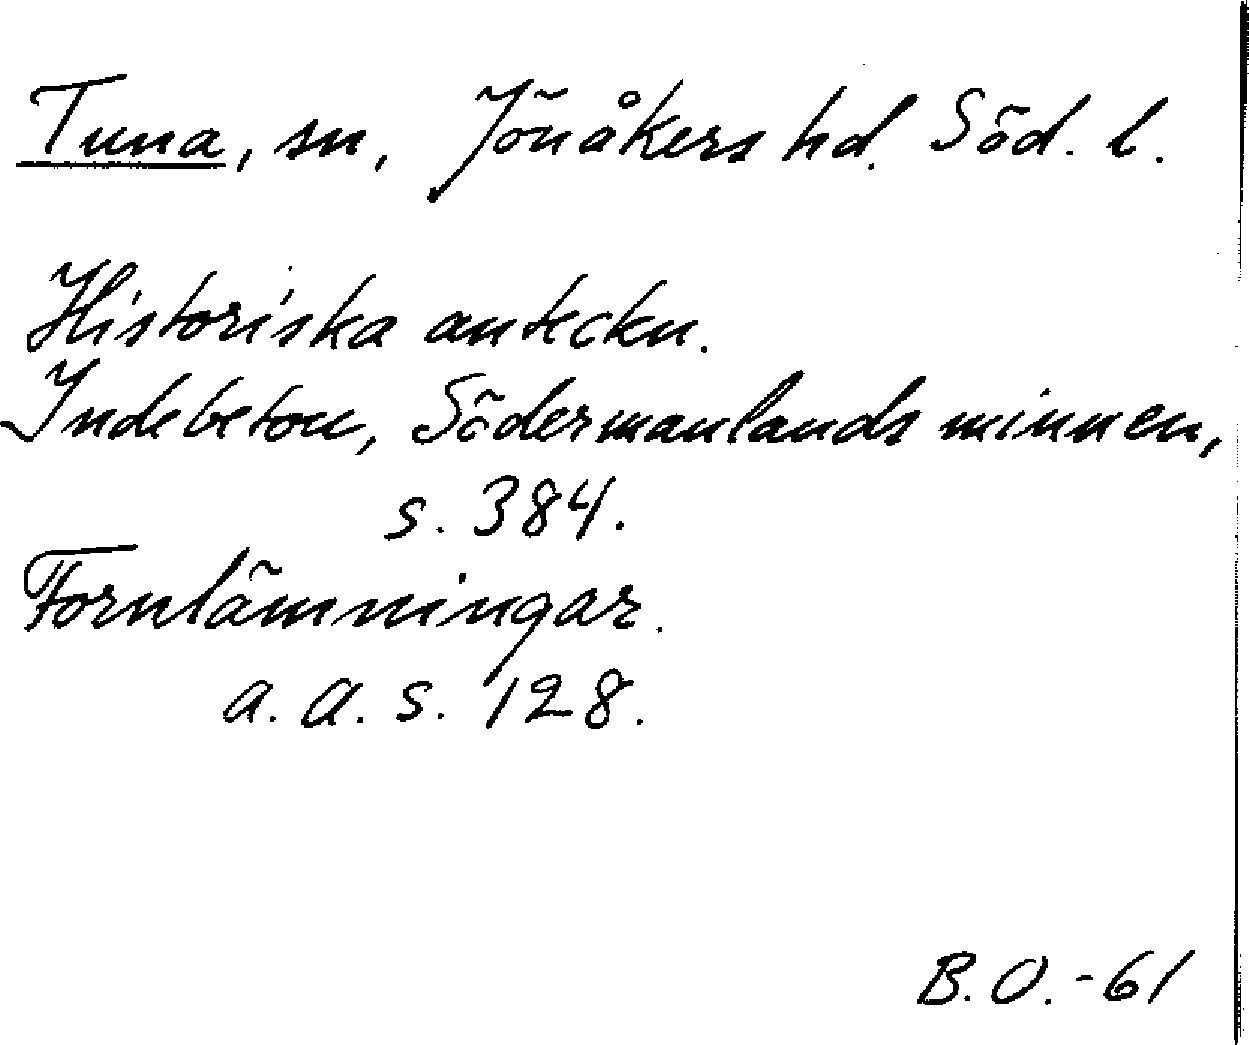 Tuna, sn, Jönåkers hd. Söd. l.
Historiska anteckn.
Indebetou, Södermanlands minnen,
s. 384.
Fornlämningar.
a. a. s. 128.
B. O. - 61